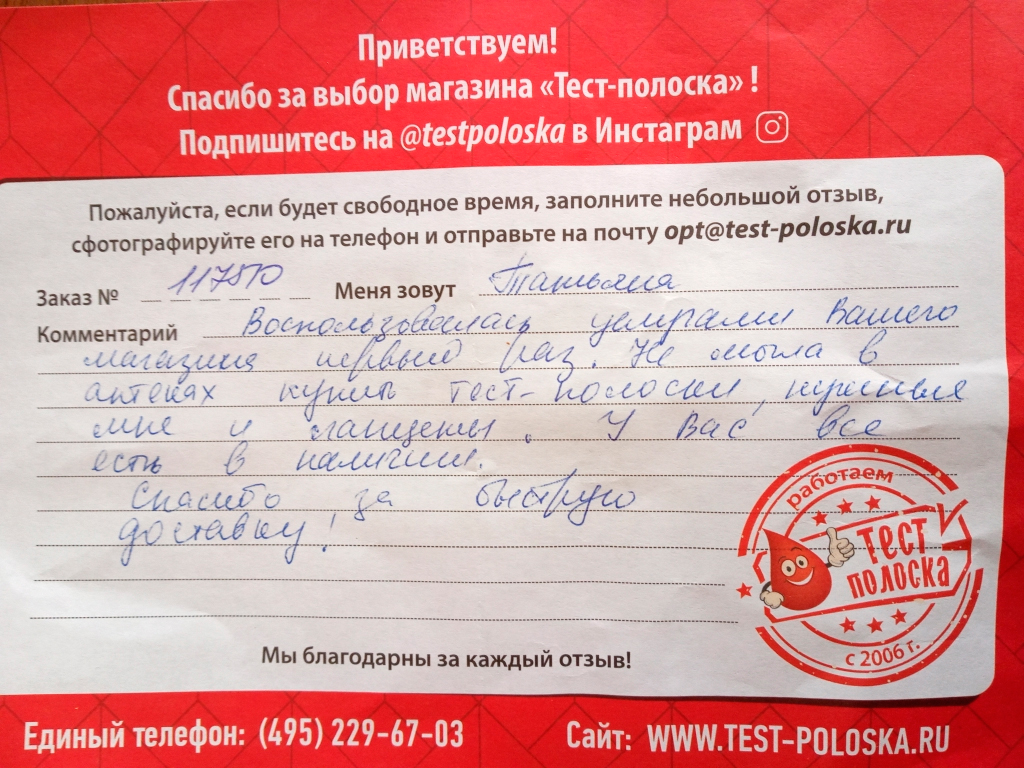 Приветствуем!
Спасибо за выбор магазина «Тест-полоска» !
Подпишитесь на @testpoloska в Инстаграм
Пожалуйста, если будет свободное время, заполните небольшой отзыв,
сфотографируйте его на телефон и отправьте на почту opt@test-poloska.ru
Заказ № 117510 Меня зовут Татьяна
Комментарий Воспользовалась услугами Вашего
магазина первый раз. Не могла в
аптеках купить тест-полоски, нужные
мне и ланцеты. У Вас все
есть в наличии.
Спасибо за быструю
доставку!
работаем
ТЕСТ
ПОЛОСКА
с 2006 г.
Мы благодарны за каждый отзыв!
Единый телефон: (495) 229-67-03 Сайт: WWW.TEST-POLOSKA.RU